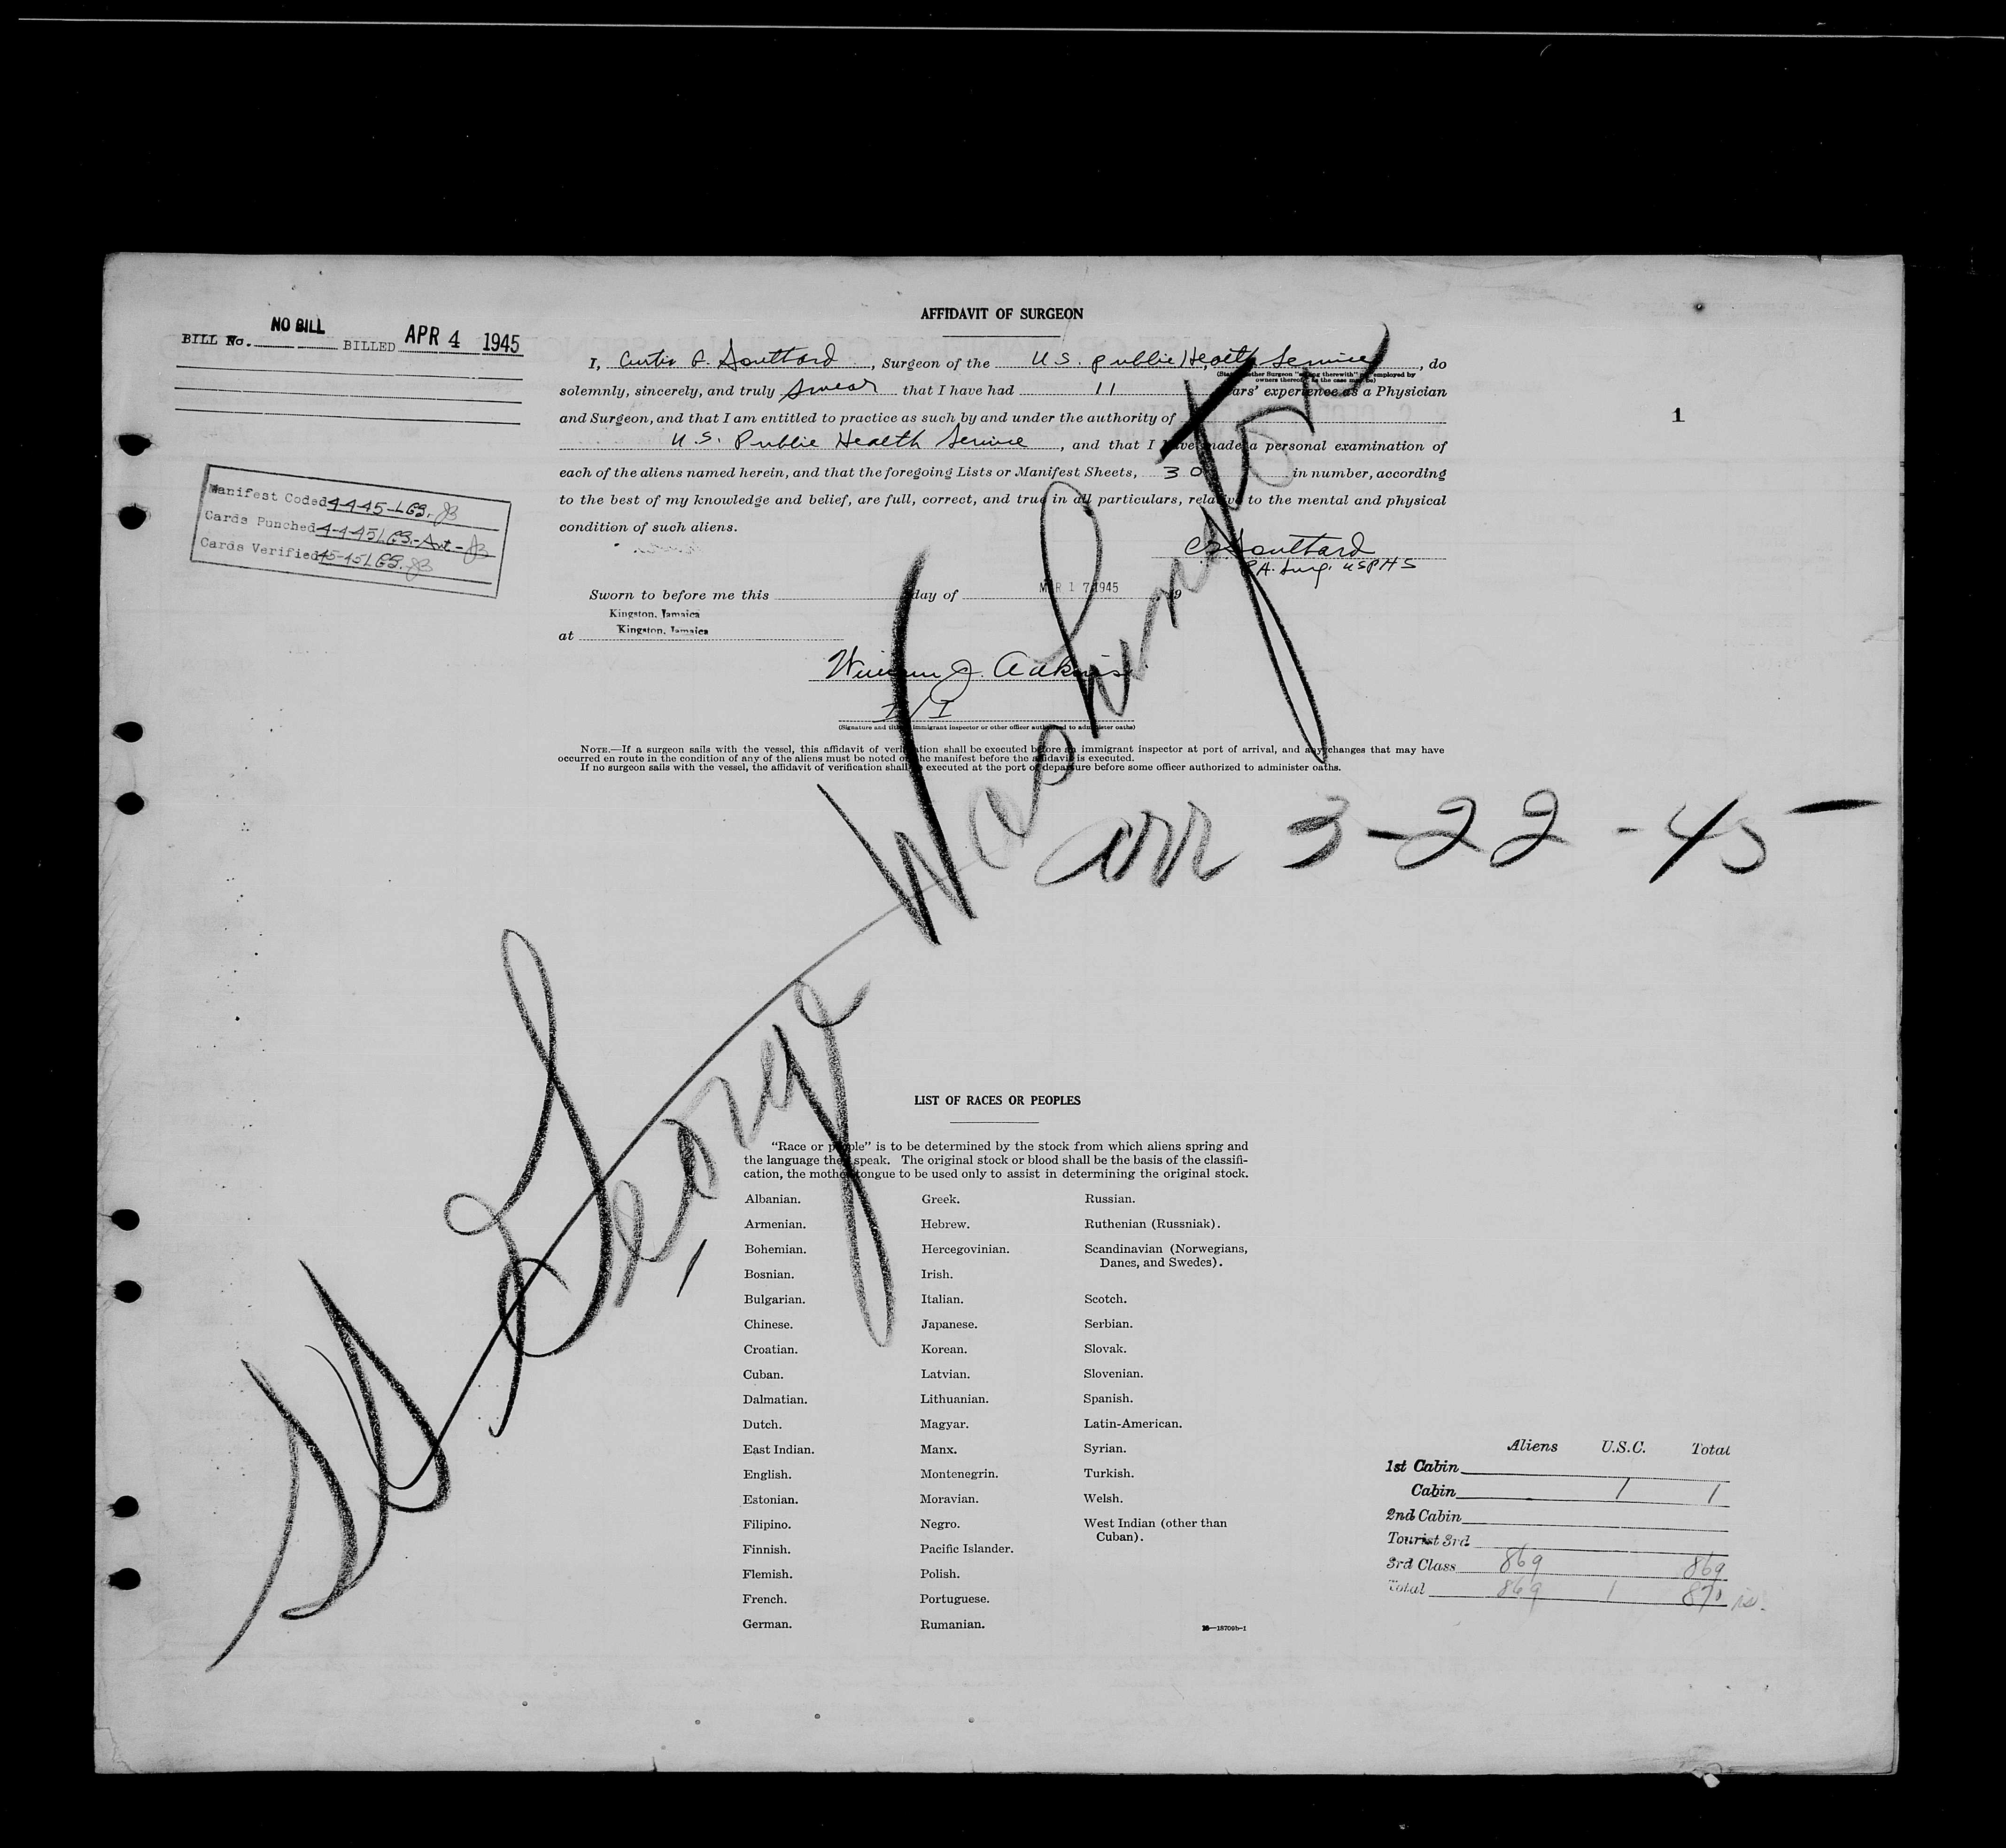 AFFIDAVIT OF SURGEON
NO BILL
BILL No. BILLED APR 4 1945
I, Curtis G. Southard, Surgeon of the U.S. Public Health Service, do
(State whether Surgeon "sailing therewith" or employed by
owners thereof, as the case may be)
solemnly, sincerely, and truly swear that I have had 11 years' experience as a Physician
and Surgeon, and that I am entitled to practice as such by and under the authority of
U.S. Public Health Service, and that I have made a personal examination of
each of the aliens named herein, and that the foregoing Lists or Manifest Sheets, 30 in number, according
to the best of my knowledge and belief, are full, correct, and true in all particulars, relative to the mental and physical
condition of such aliens.
1
Manifest Coded 4-4-45-LGB. JB
Cards Punched 4-4-45 LGB.-Art-JB
Cards Verified 4-5-45 LGB. JB
CG Southard
P.A. Surg. USPHS
Sworn to before me this day of MAR 17 1945 19
Kingston, Jamaica
at Kingston, Jamaica
William J. Adkins
I/I
(Signature and title of immigrant inspector or other officer authorized to administer oaths)
NOTE.—If a surgeon sails with the vessel, this affidavit of verification shall be executed before an immigrant inspector at port of arrival, and any changes that may have
occurred en route in the condition of any of the aliens must be noted on the manifest before the affidavit is executed.
If no surgeon sails with the vessel, the affidavit of verification shall be executed at the port of departure before some officer authorized to administer oaths.
SS George Washington
arr 3-22-45
LIST OF RACES OR PEOPLES
"Race or people" is to be determined by the stock from which aliens spring and
the language they speak. The original stock or blood shall be the basis of the classifi-
cation, the mother tongue to be used only to assist in determining the original stock.
Albanian.
Armenian.
Bohemian.
Bosnian.
Bulgarian.
Chinese.
Croatian.
Cuban.
Dalmatian.
Dutch.
East Indian.
English.
Estonian.
Filipino.
Finnish.
Flemish.
French.
German.
Greek.
Hebrew.
Hercegovinian.
Irish.
Italian.
Japanese.
Korean.
Latvian.
Lithuanian.
Magyar.
Manx.
Montenegrin.
Moravian.
Negro.
Pacific Islander.
Polish.
Portuguese.
Rumanian.
Russian.
Ruthenian (Russniak).
Scandinavian (Norwegians,
Danes, and Swedes).
Scotch.
Serbian.
Slovak.
Slovenian.
Spanish.
Latin-American.
Syrian.
Turkish.
Welsh.
West Indian (other than
Cuban).
16—18709b-1
Aliens U.S.C. Total
1st Cabin
Cabin 1 1
2nd Cabin
Tourist 3rd
3rd Class 869 869
Total 869 1 870